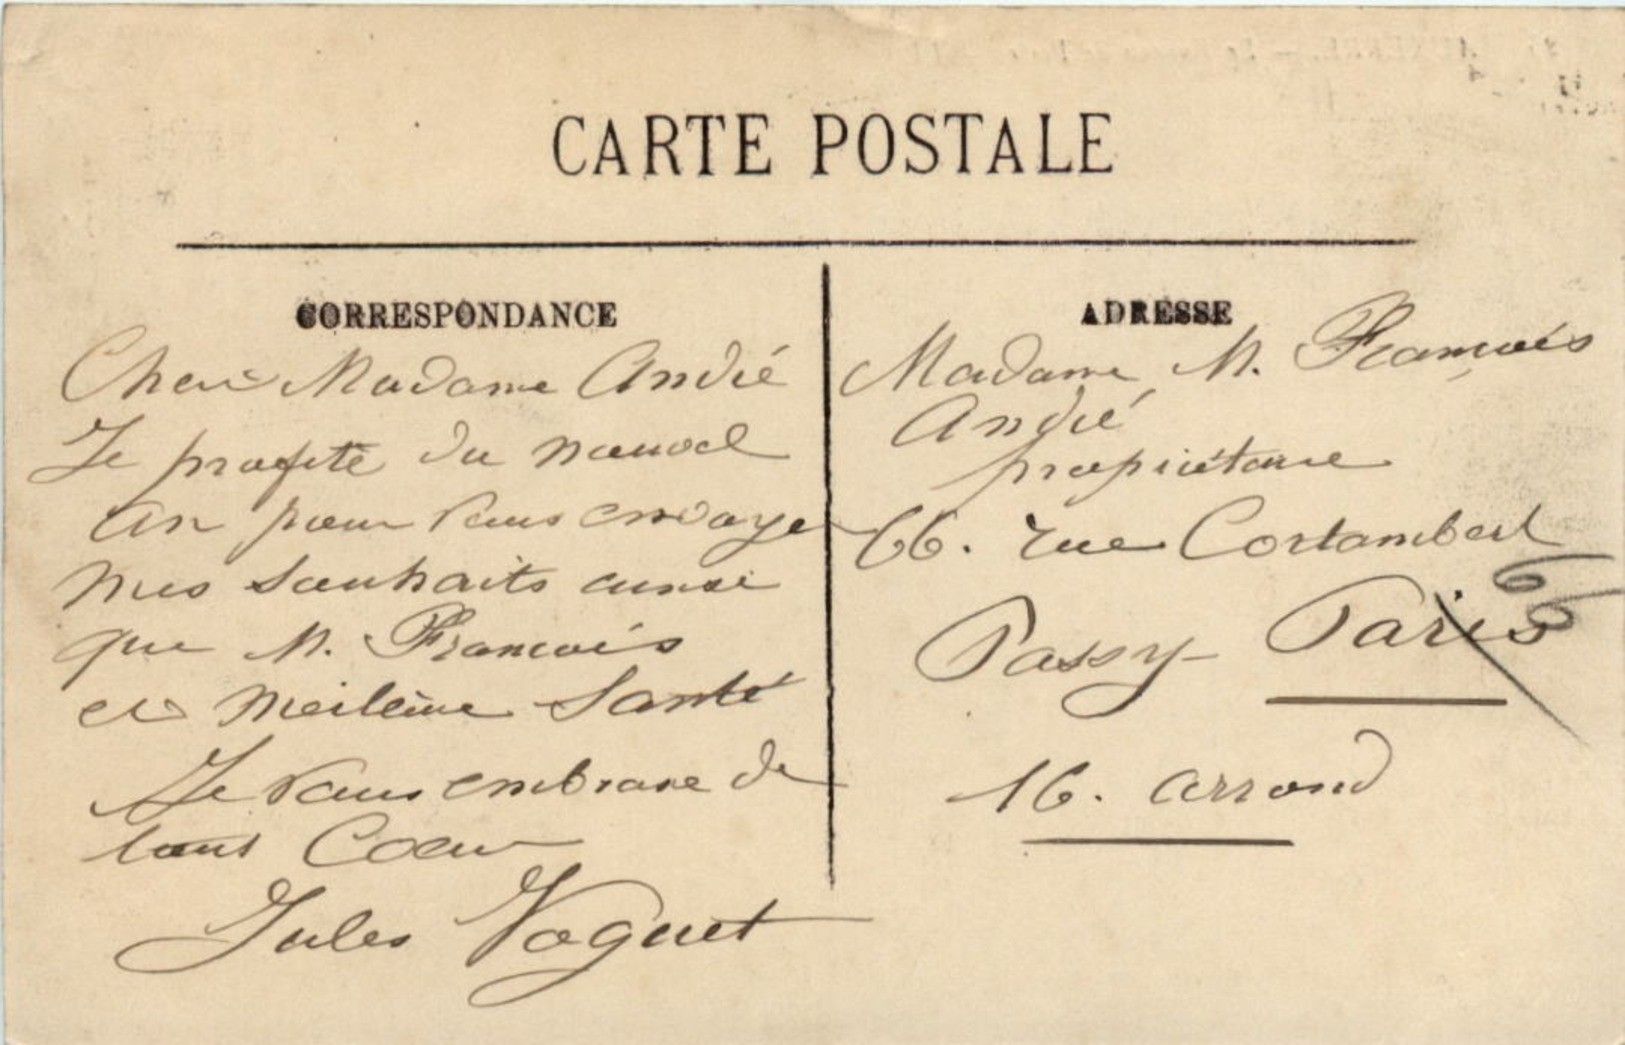 CARTE POSTALE
CORRESPONDANCE
Cher Madame André
Je profite du nouvel
an pour vous envoye
mes souhaits ainsi
que M. François
et meileure Santé
Je vous embrase de
tout Coeur
Jules Voguet
ADRESSE
Madame M. François
André
propriétaire
66. rue Cortambert
Passy - Paris
16. arrond